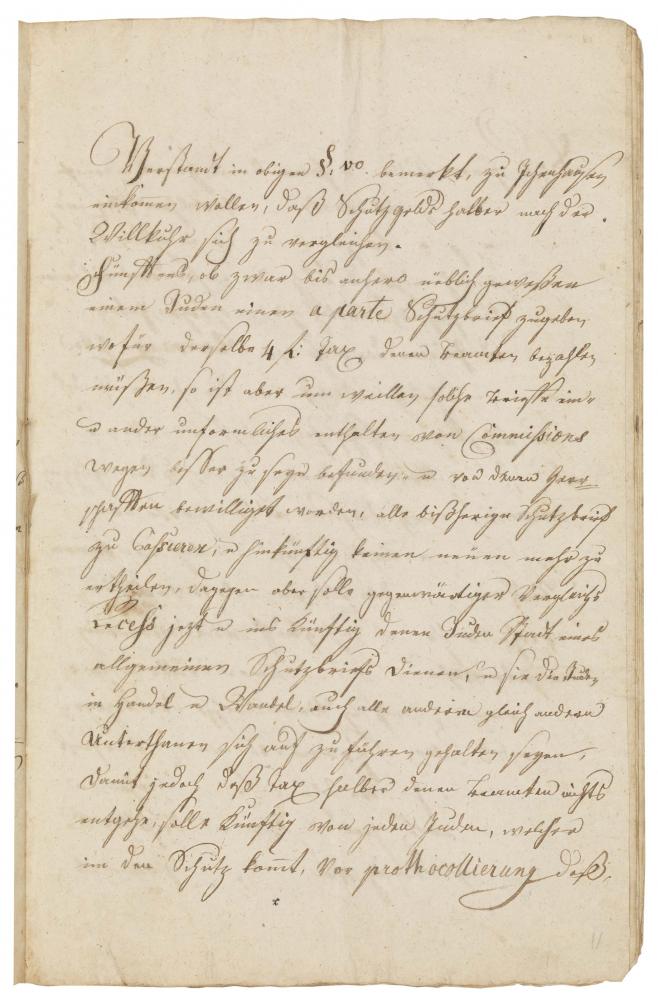 Verstandt in obigen §. vo. bemerkt, zu Ichenhausen
einkomen wollen, daß Schutzgelds halber nach der
Willkuhr sich zu vergleichen.
Fünfftens, ob zwar bis anhero üeblich gewesen
einem Juden einen a parte Schutzbrief zugeben,
wofür derselbe 4 f: Tax denen Beamten bezahlen
müssen, so ist aber um weillen solche Brieffe ein-
u ander unformliches enthalten von Commissions
wegen besser zu seyn befunden, u von denen Herr-
schafften bewilliget worden, alle bißherige Schutzbrief
zu Cassieren, u hinkünftig keinen neuen mehr zu
ertheilen, dagegen aber solle gegenwärtiger Vergleichs
Recess jezt u ins Künftig denen Juden Statt eines
allgemeinen Schutzbriefs dienen, u sie die Juden
in Handel u Wandel, auch alle andere gleich andern
Unterthanen sich auf zu führen gehalten seyen,
damit jedoch deß Tax halber denen Beamten nichts
entgehe, solle Künftig von jeden Juden, welcher
in den Schutz kommt, vor prothocollierung deß-
11